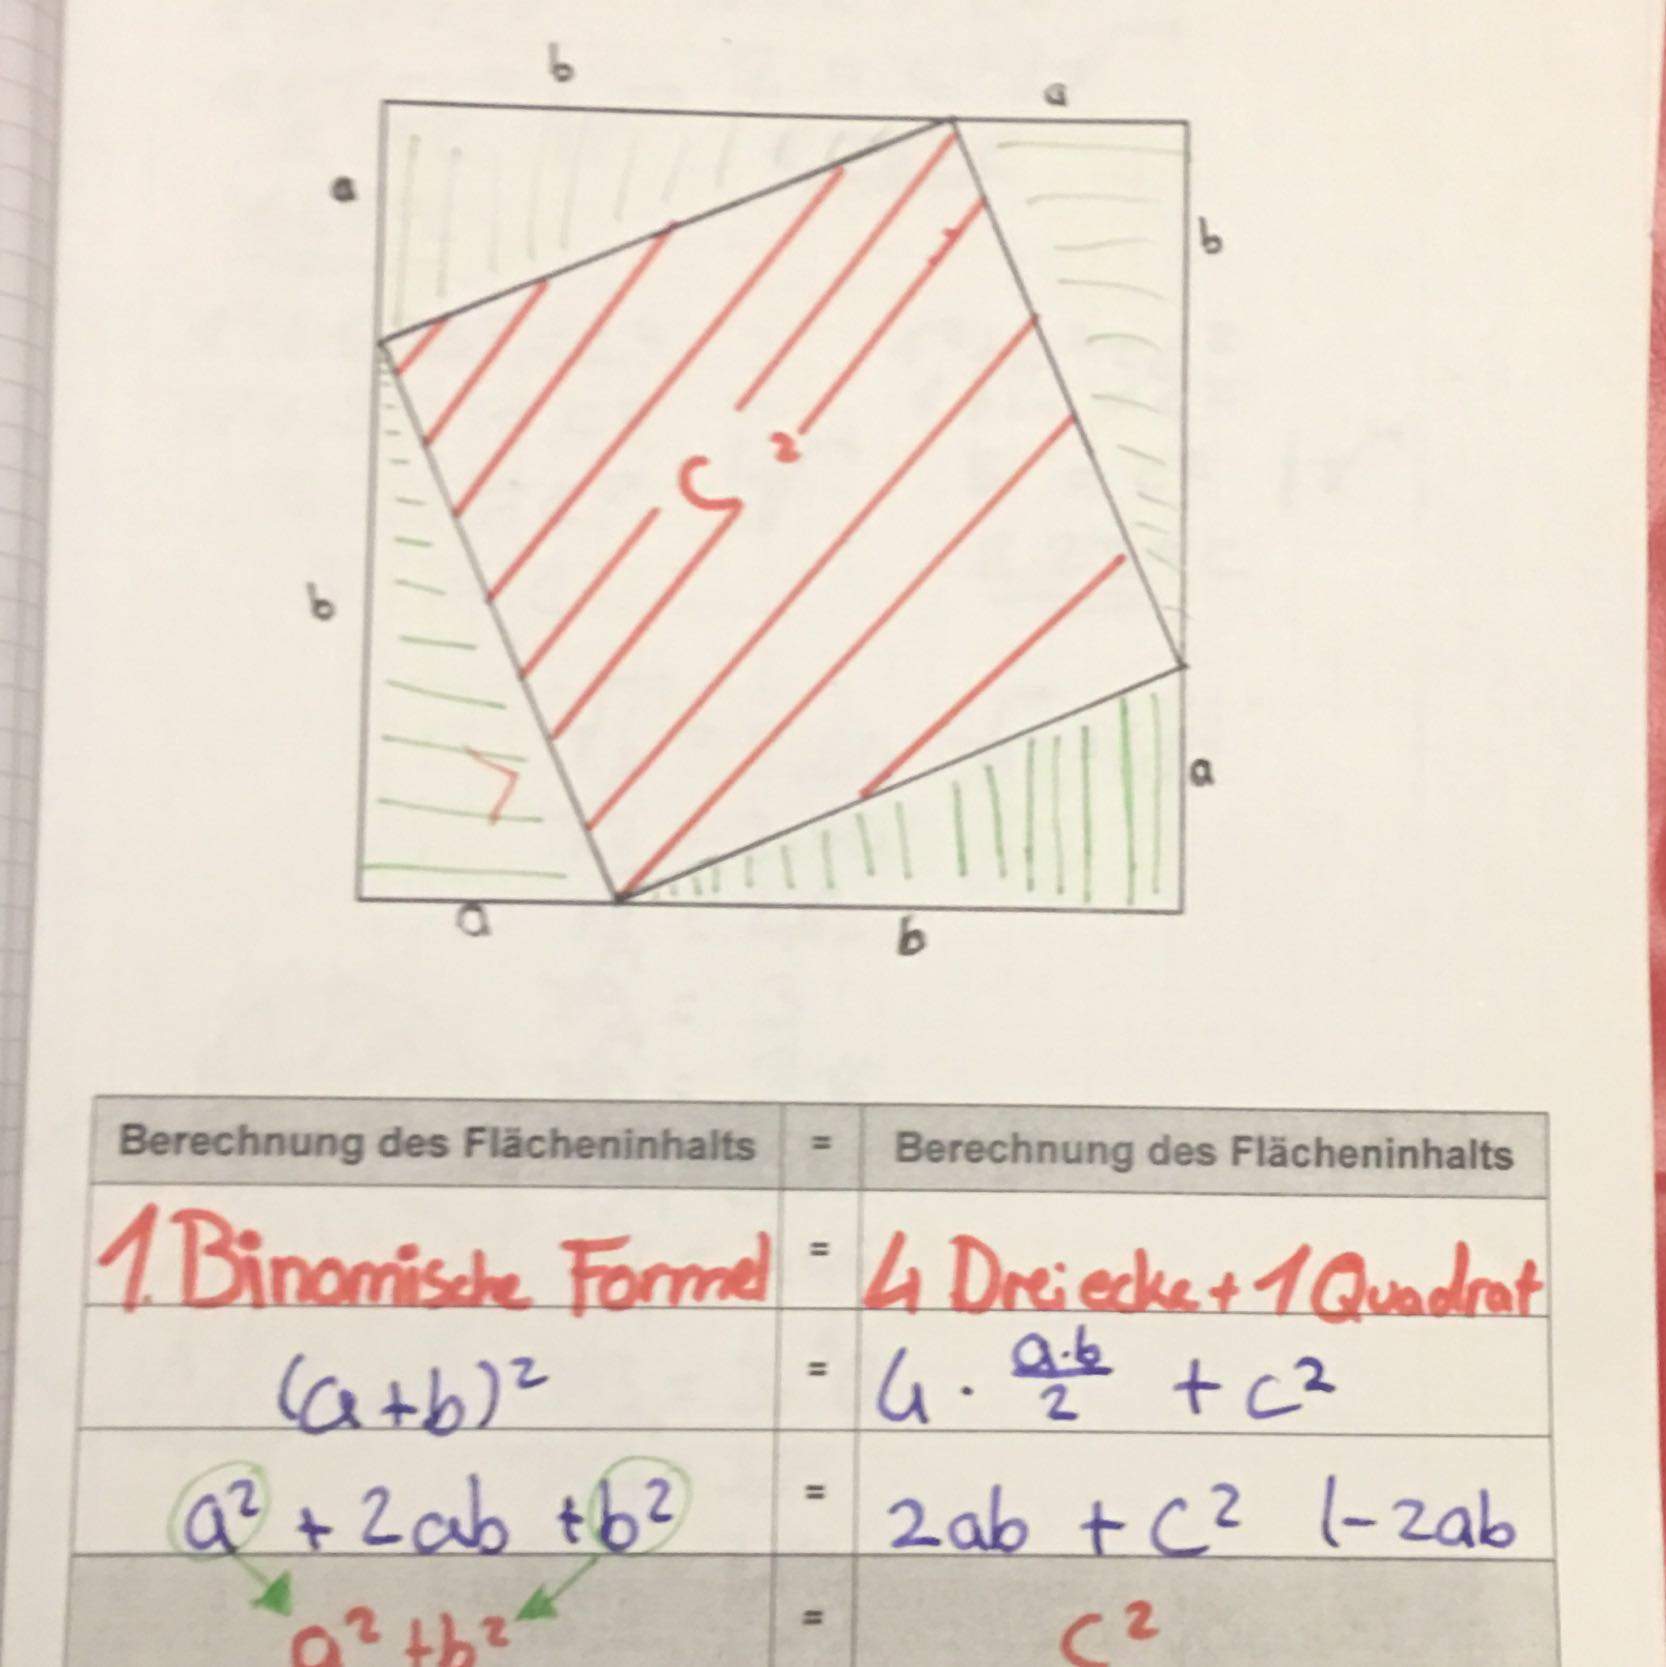 b a
a
b
c²
b
a
a b
Berechnung des Flächeninhalts = Berechnung des Flächeninhalts
1. Binomische Formel = 4 Dreiecke + 1 Quadrat
(a+b)² = 4 · a·b/2 + c²
a² + 2ab + b² = 2ab + c² |-2ab
a² + b² = c²